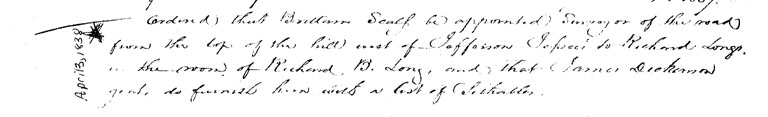 Ordered that Brittain Scalf be appointed Surveyor of the road
from the top of the hill west of Jefferson Jessee's to Richard Longs,
in the room of Richard B. Long, and that James Dickenson
gent, do furnish him with a list of Tithables.
April 3, 1838